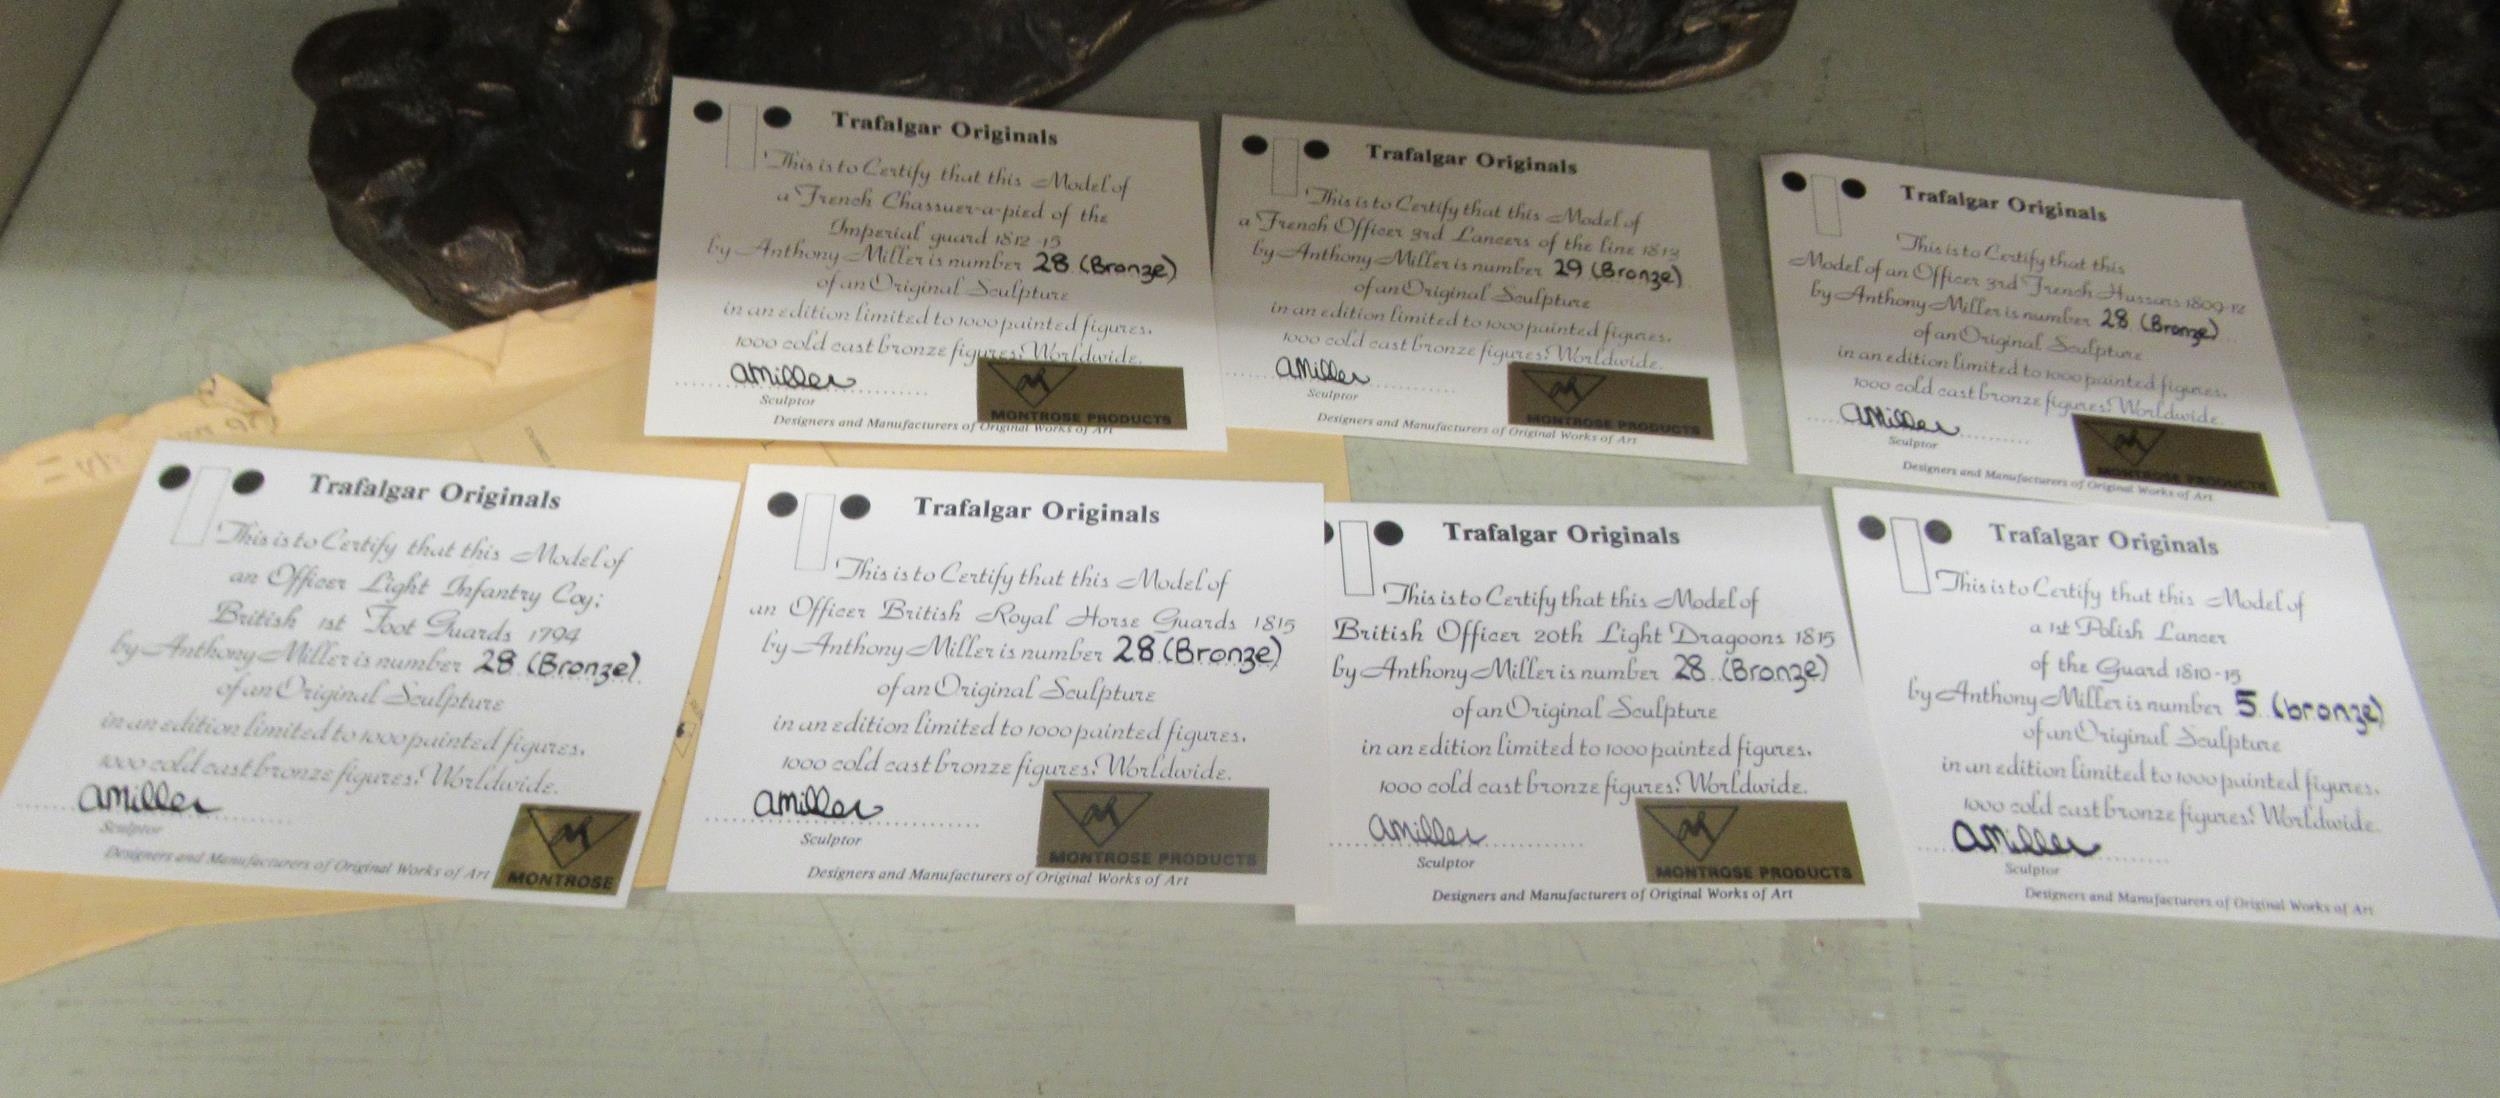 Trafalgar Originals
This is to Certify that this Model of
a French Chassuer-a-pied of the
Imperial guard 1812-15
by Anthony Miller is number 28 (Bronze)
of an Original Sculpture
in an edition limited to 1000 painted figures.
1000 cold cast bronze figures: Worldwide.
AMiller
Sculptor
MONTROSE PRODUCTS
Designers and Manufacturers of Original Works of Art
Trafalgar Originals
This is to Certify that this Model of
a French Officer 3rd Lancers of the line 1813
by Anthony Miller is number 29 (Bronze)
of an Original Sculpture
in an edition limited to 1000 painted figures.
1000 cold cast bronze figures: Worldwide.
AMiller
Sculptor
MONTROSE PRODUCTS
Designers and Manufacturers of Original Works of Art
Trafalgar Originals
This is to Certify that this
Model of an Officer 3rd French Hussars 1809-12
by Anthony Miller is number 28 (Bronze)
of an Original Sculpture
in an edition limited to 1000 painted figures.
1000 cold cast bronze figures: Worldwide.
AMiller
Sculptor
MONTROSE PRODUCTS
Designers and Manufacturers of Original Works of Art
Trafalgar Originals
This is to Certify that this Model of
an Officer Light Infantry Coy;
British 1st Foot Guards 1794
by Anthony Miller is number 28 (Bronze)
of an Original Sculpture
in an edition limited to 1000 painted figures.
1000 cold cast bronze figures: Worldwide.
AMiller
Sculptor
Designers and Manufacturers of Original Works of Art
MONTROSE
Trafalgar Originals
This is to Certify that this Model of
an Officer British Royal Horse Guards 1815
by Anthony Miller is number 28 (Bronze)
of an Original Sculpture
in an edition limited to 1000 painted figures.
1000 cold cast bronze figures: Worldwide.
AMiller
Sculptor
MONTROSE PRODUCTS
Designers and Manufacturers of Original Works of Art
Trafalgar Originals
This is to Certify that this Model of
British Officer 20th Light Dragoons 1815
by Anthony Miller is number 28 (Bronze)
of an Original Sculpture
in an edition limited to 1000 painted figures.
1000 cold cast bronze figures: Worldwide.
AMiller
Sculptor
MONTROSE PRODUCTS
Designers and Manufacturers of Original Works of Art
Trafalgar Originals
This is to Certify that this Model of
a 1st Polish Lancer
of the Guard 1810-15
by Anthony Miller is number 5 (bronze)
of an Original Sculpture
in an edition limited to 1000 painted figures.
1000 cold cast bronze figures: Worldwide.
AMiller
Sculptor
Designers and Manufacturers of Original Works of Art